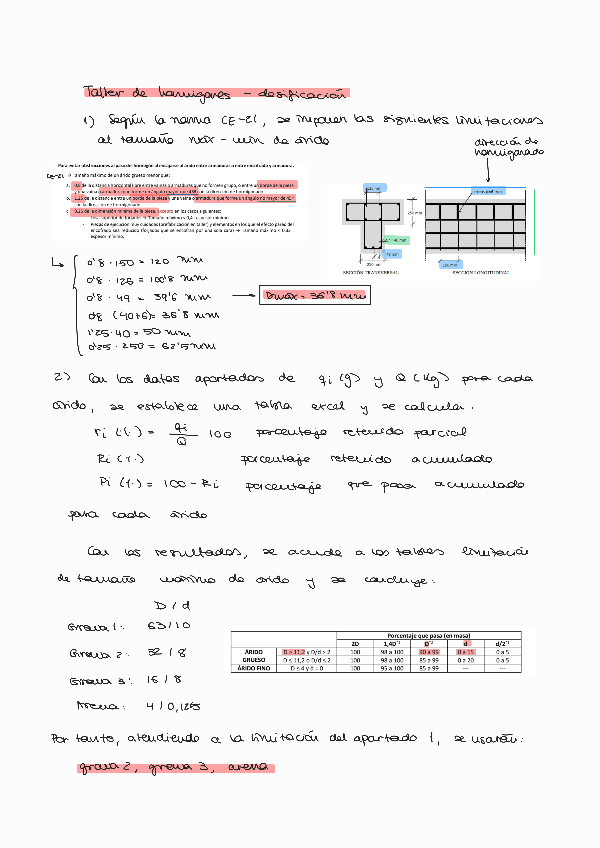 Taller de hormigones - dosificación
1) Según la norma CE-21, se imponen las siguientes limitaciones
al tamaño máx - min de árido
dirección de
hormigonado
Para evitar obstrucciones al paso del hormigón al encajarse el árido entre varias armaduras o entre encofrado y armadura.
CE-21 → Tamaño máximo de un árido grueso menor que:
a. 0,8 de la distancia horizontal libre entre vainas o armaduras que no formen grupo, o entre un borde de la pieza
y una vaina o armadura que forme un ángulo mayor que 45º con la dirección de hormigonado
b. 1,25 de la distancia entre un borde de la pieza y una vaina o armadura que forme un ángulo no mayor de 45º
con la dirección de hormigonado.
c. 0,25 de la dimensión mínima de la pieza, excepto en los casos siguientes:
250 mm
250 mm
SECCIÓN TRANSVERSAL
SECCIÓN LONGITUDINAL
0'8 · 150 = 120 mm
0'8 · 126 = 100'8 mm
0'8 · 49 = 39'6 mm
0'8 (40+6) = 36'8 mm
1'25 · 40 = 50 mm
0'25 · 250 = 62'5 mm
Dmáx = 36'8 mm
2) Con los datos aportados de qi (g) y Q (kg) para cada
árido, se establece una tabla excel y se calcula:
ri (%) = qi/Q 100 porcentaje retenido parcial
Ri (%) porcentaje retenido acumulado
Pi (%) = 100 - Ri porcentaje que pasa acumulado
para cada árido
Con los resultados, se acude a las tablas limitación
de tamaño máximo de árido y se concluye:
D / d
Grava 1: 63 / 10
Grava 2: 32 / 8
Grava 3: 16 / 8
Arena: 4 / 0,125
Porcentaje que pasa (en masa)
2D 1,4D*1 D*2 d d/2*1
ÁRIDO D > 11,2 y D/d > 2 100 98 a 100 90 a 99 0 a 15 0 a 5
GRUESO D ≤ 11,2 o D/d ≤ 2 100 98 a 100 85 a 99 0 a 20 0 a 5
ÁRIDO FINO D ≤ 4 y d = 0 100 95 a 100 85 a 99 --- ---
Por tanto, atendiendo a la limitación del apartado 1, se usarán:
grava 2, grava 3, arena